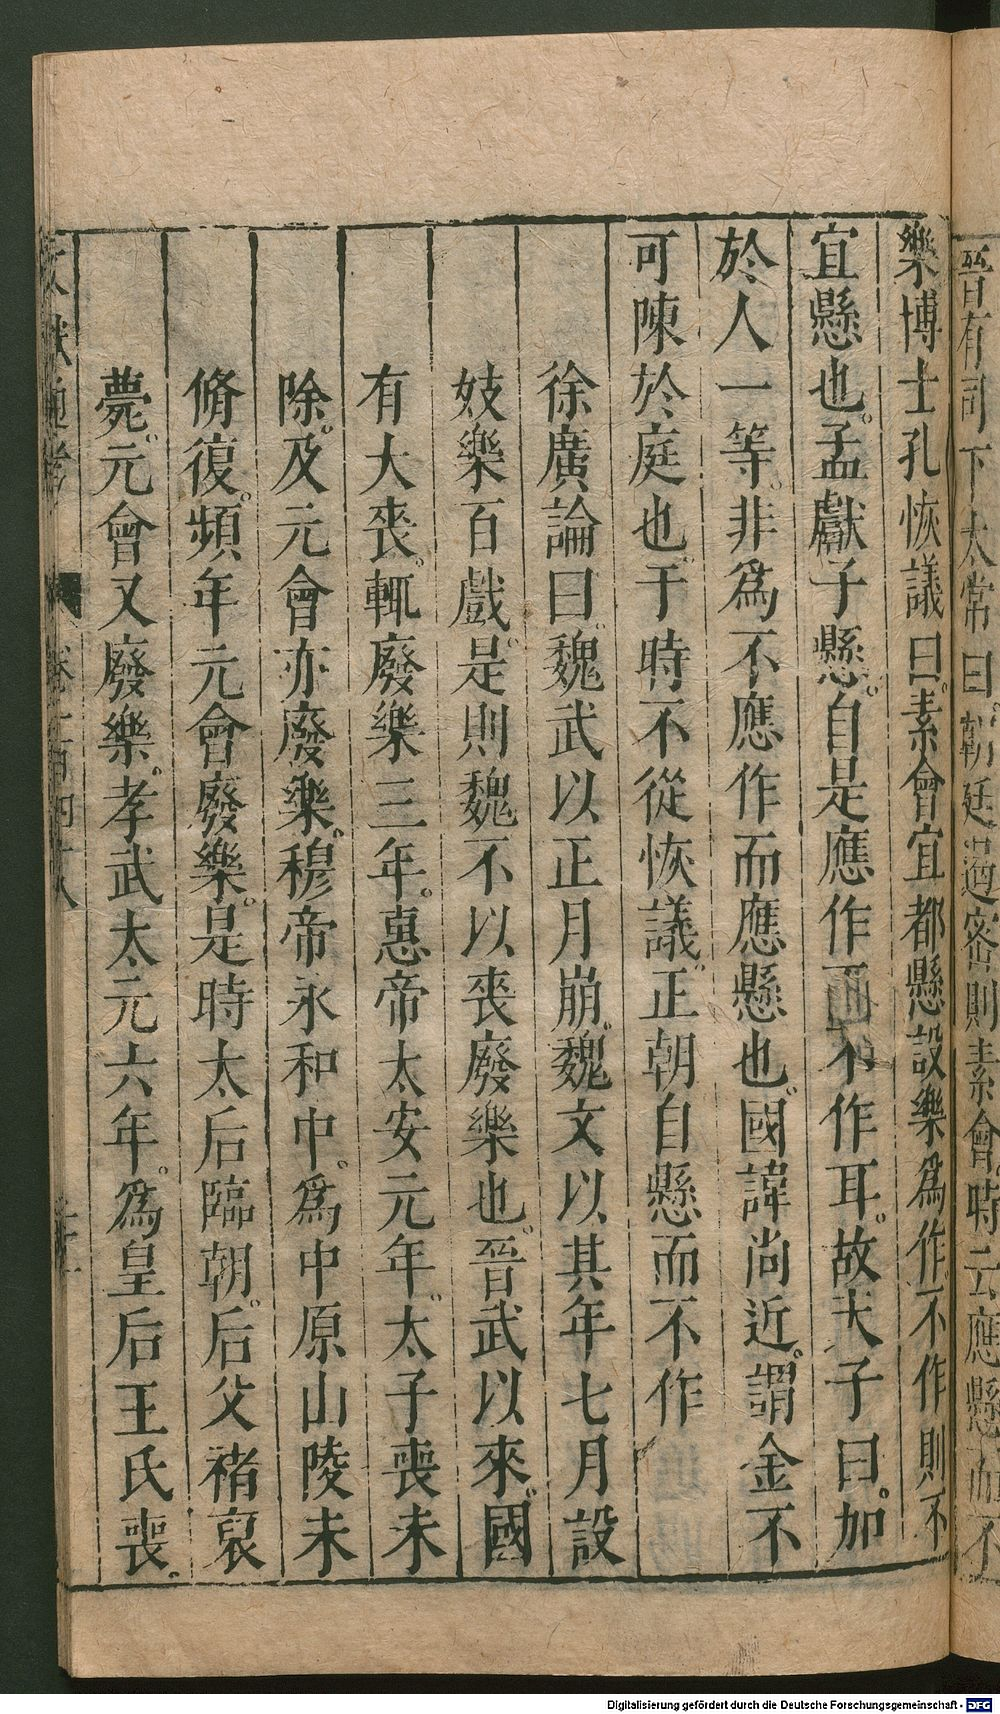 晉有司下太常曰。朝廷遏密則素會。時云應懸而不
樂博士孔恢議曰。素會宜都懸設樂爲作。不作則不
宜懸也。孟獻子懸。自是應作而不作耳。故夫子曰。加
於人一等。非爲不應作而應懸也。國諱尚近。謂金不
可陳於庭也。于時不從恢議。正朝自懸而不作
徐廣論曰。魏武以正月崩。魏文以其年七月設
妓樂百戲。是則魏不以喪廢樂也。晉武以來。國
有大喪。輒廢樂三年。惠帝太安元年。太子喪未
除。及元會亦廢樂。穆帝永和中。爲中原山陵未
脩復。頻年元會廢樂。是時太后臨朝。后父褚裒
薨。元會又廢樂。孝武太元六年。爲皇后王氏喪。
文獻通考 卷一百四十八
Digitalisierung gefördert durch die Deutsche Forschungsgemeinschaft - DFG